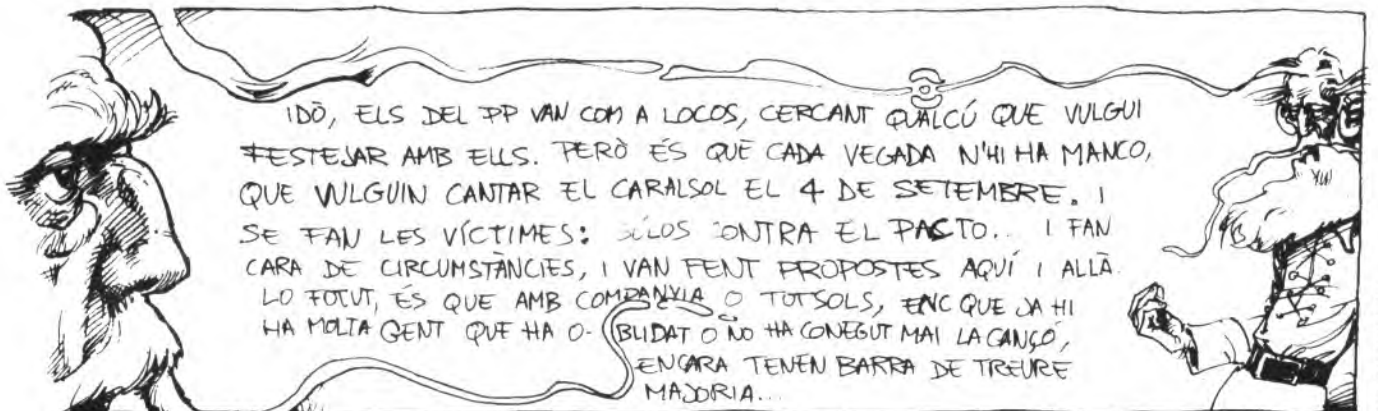 IDÒ, ELS DEL PP VAN COM A LOCOS, CERCANT QUALCÚ QUE VULGUI
FESTEJAR AMB ELLS. PERÒ ÉS QUE CADA VEGADA N'HI HA MANCO,
QUE VULGUIN CANTAR EL CARALSOL EL 4 DE SETEMBRE. I
SE FAN LES VÍCTIMES: SOLOS CONTRA EL PACTO... I FAN
CARA DE CIRCUMSTÀNCIES, I VAN FENT PROPOSTES AQUÍ I ALLÀ.
LO FOTUT, ÉS QUE AMB COMPANYIA O TOTSOLS, ENC QUE JA HI
HA MOLTA GENT QUE HA O- BLIDAT O NO HA CONEGUT MAI LA CANÇÓ,
ENCARA TENEN BARRA DE TREURE
MAJORIA...